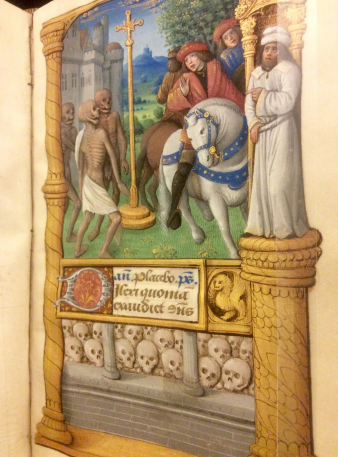 an̄. Placebo. ps̄.
DIlexi quoniā
exaudiet dn̄s